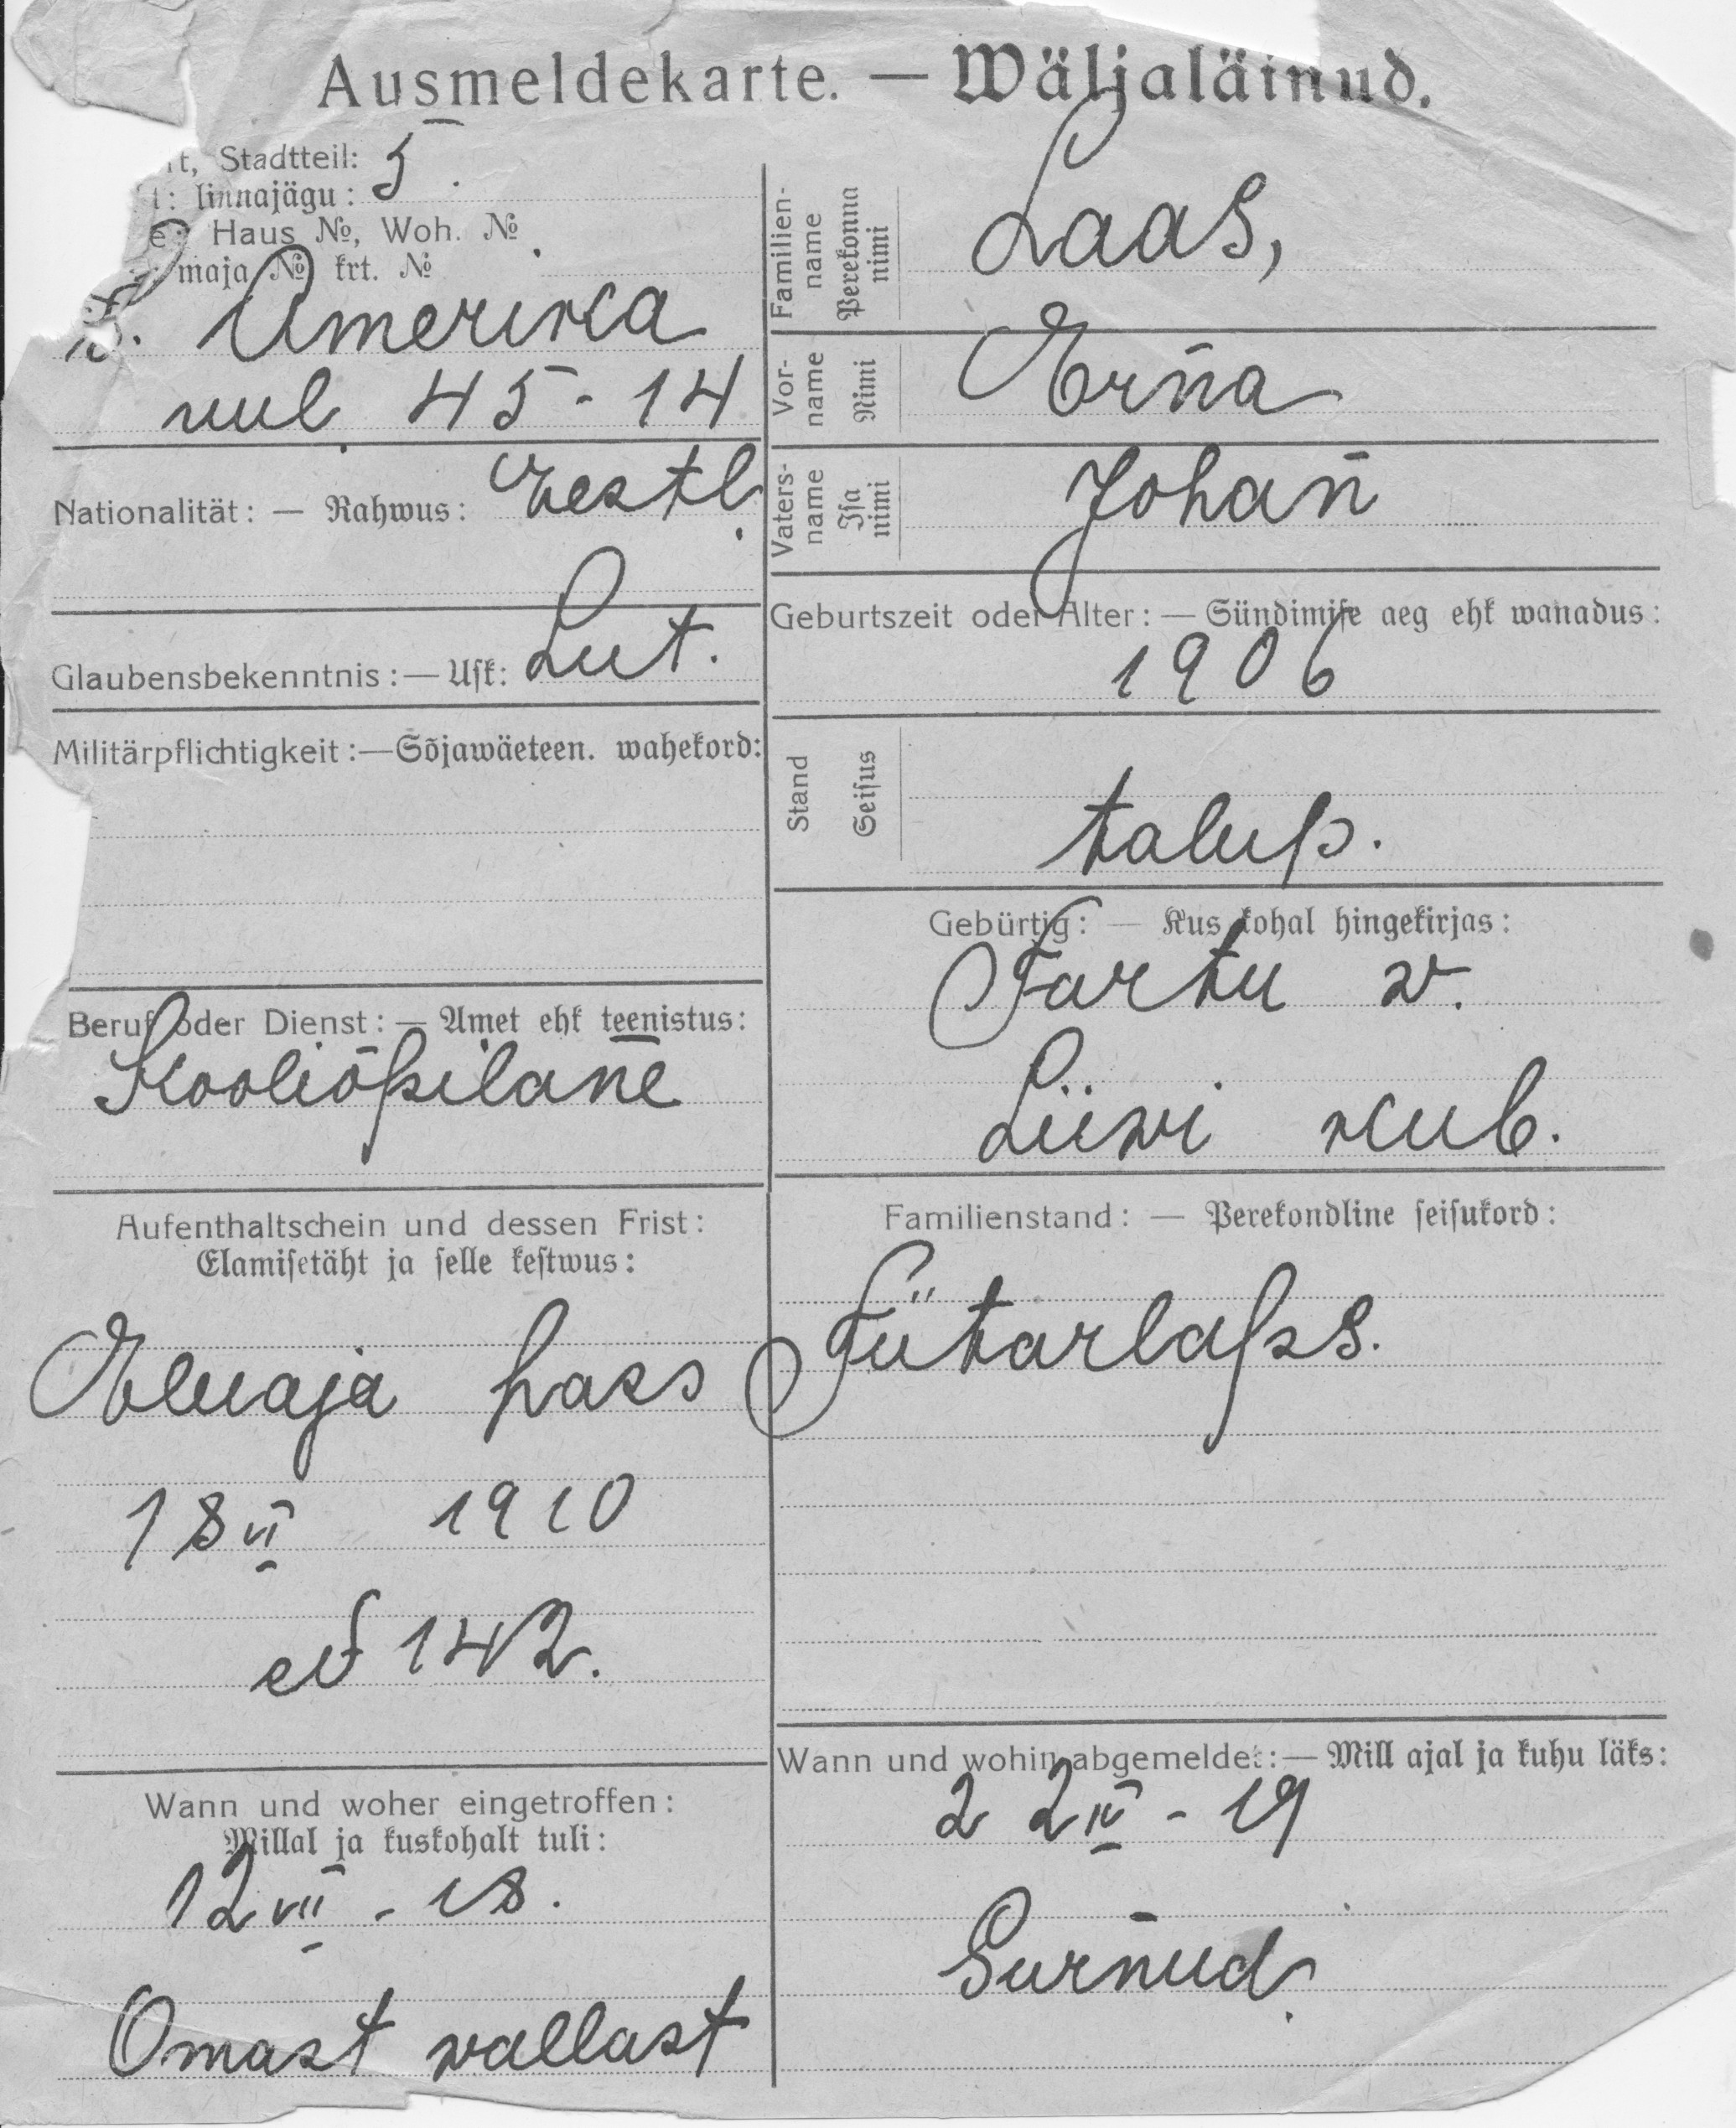 Ausmeldekarte. — Wäljaläinud.
Stadtteil: 5.
linnajägu:
Haus №, Woh. №
maja № krt. №
Amerika
uul. 45-14
Nationalität: — Rahwus: Eestl.
Glaubensbekenntnis: — Usk: Lut.
Militärpflichtigkeit: — Sõjawäeteen. wahekord:
Beruf oder Dienst: — Amet ehk teenistus:
Kooliõpilan̄e
Aufenthaltschein und dessen Frist:
Elamisetäht ja selle kestwus:
Eluaja pass
18 VI 1910
№ 142.
Wann und woher eingetroffen:
Millal ja kuskohalt tuli:
12 VII - 18.
Omast wallast
Familien-name Perekonna nimi Laas,
Vor-name Nimi Ern̄a
Vaters-name Isa nimi Johan̄
Geburtszeit oder Alter: — Sündimise aeg ehk wanadus:
1906
Stand Seisus
talup.
Gebürtig: — Kus kohal hingekirjas:
Tartu w.
Liiwi kub.
Familienstand: — Perekondline seisukord:
Tütarlaps.
Wann und wohin abgemeldet: — Mill ajal ja kuhu läks:
22 IV - 19
Surn̄ud.